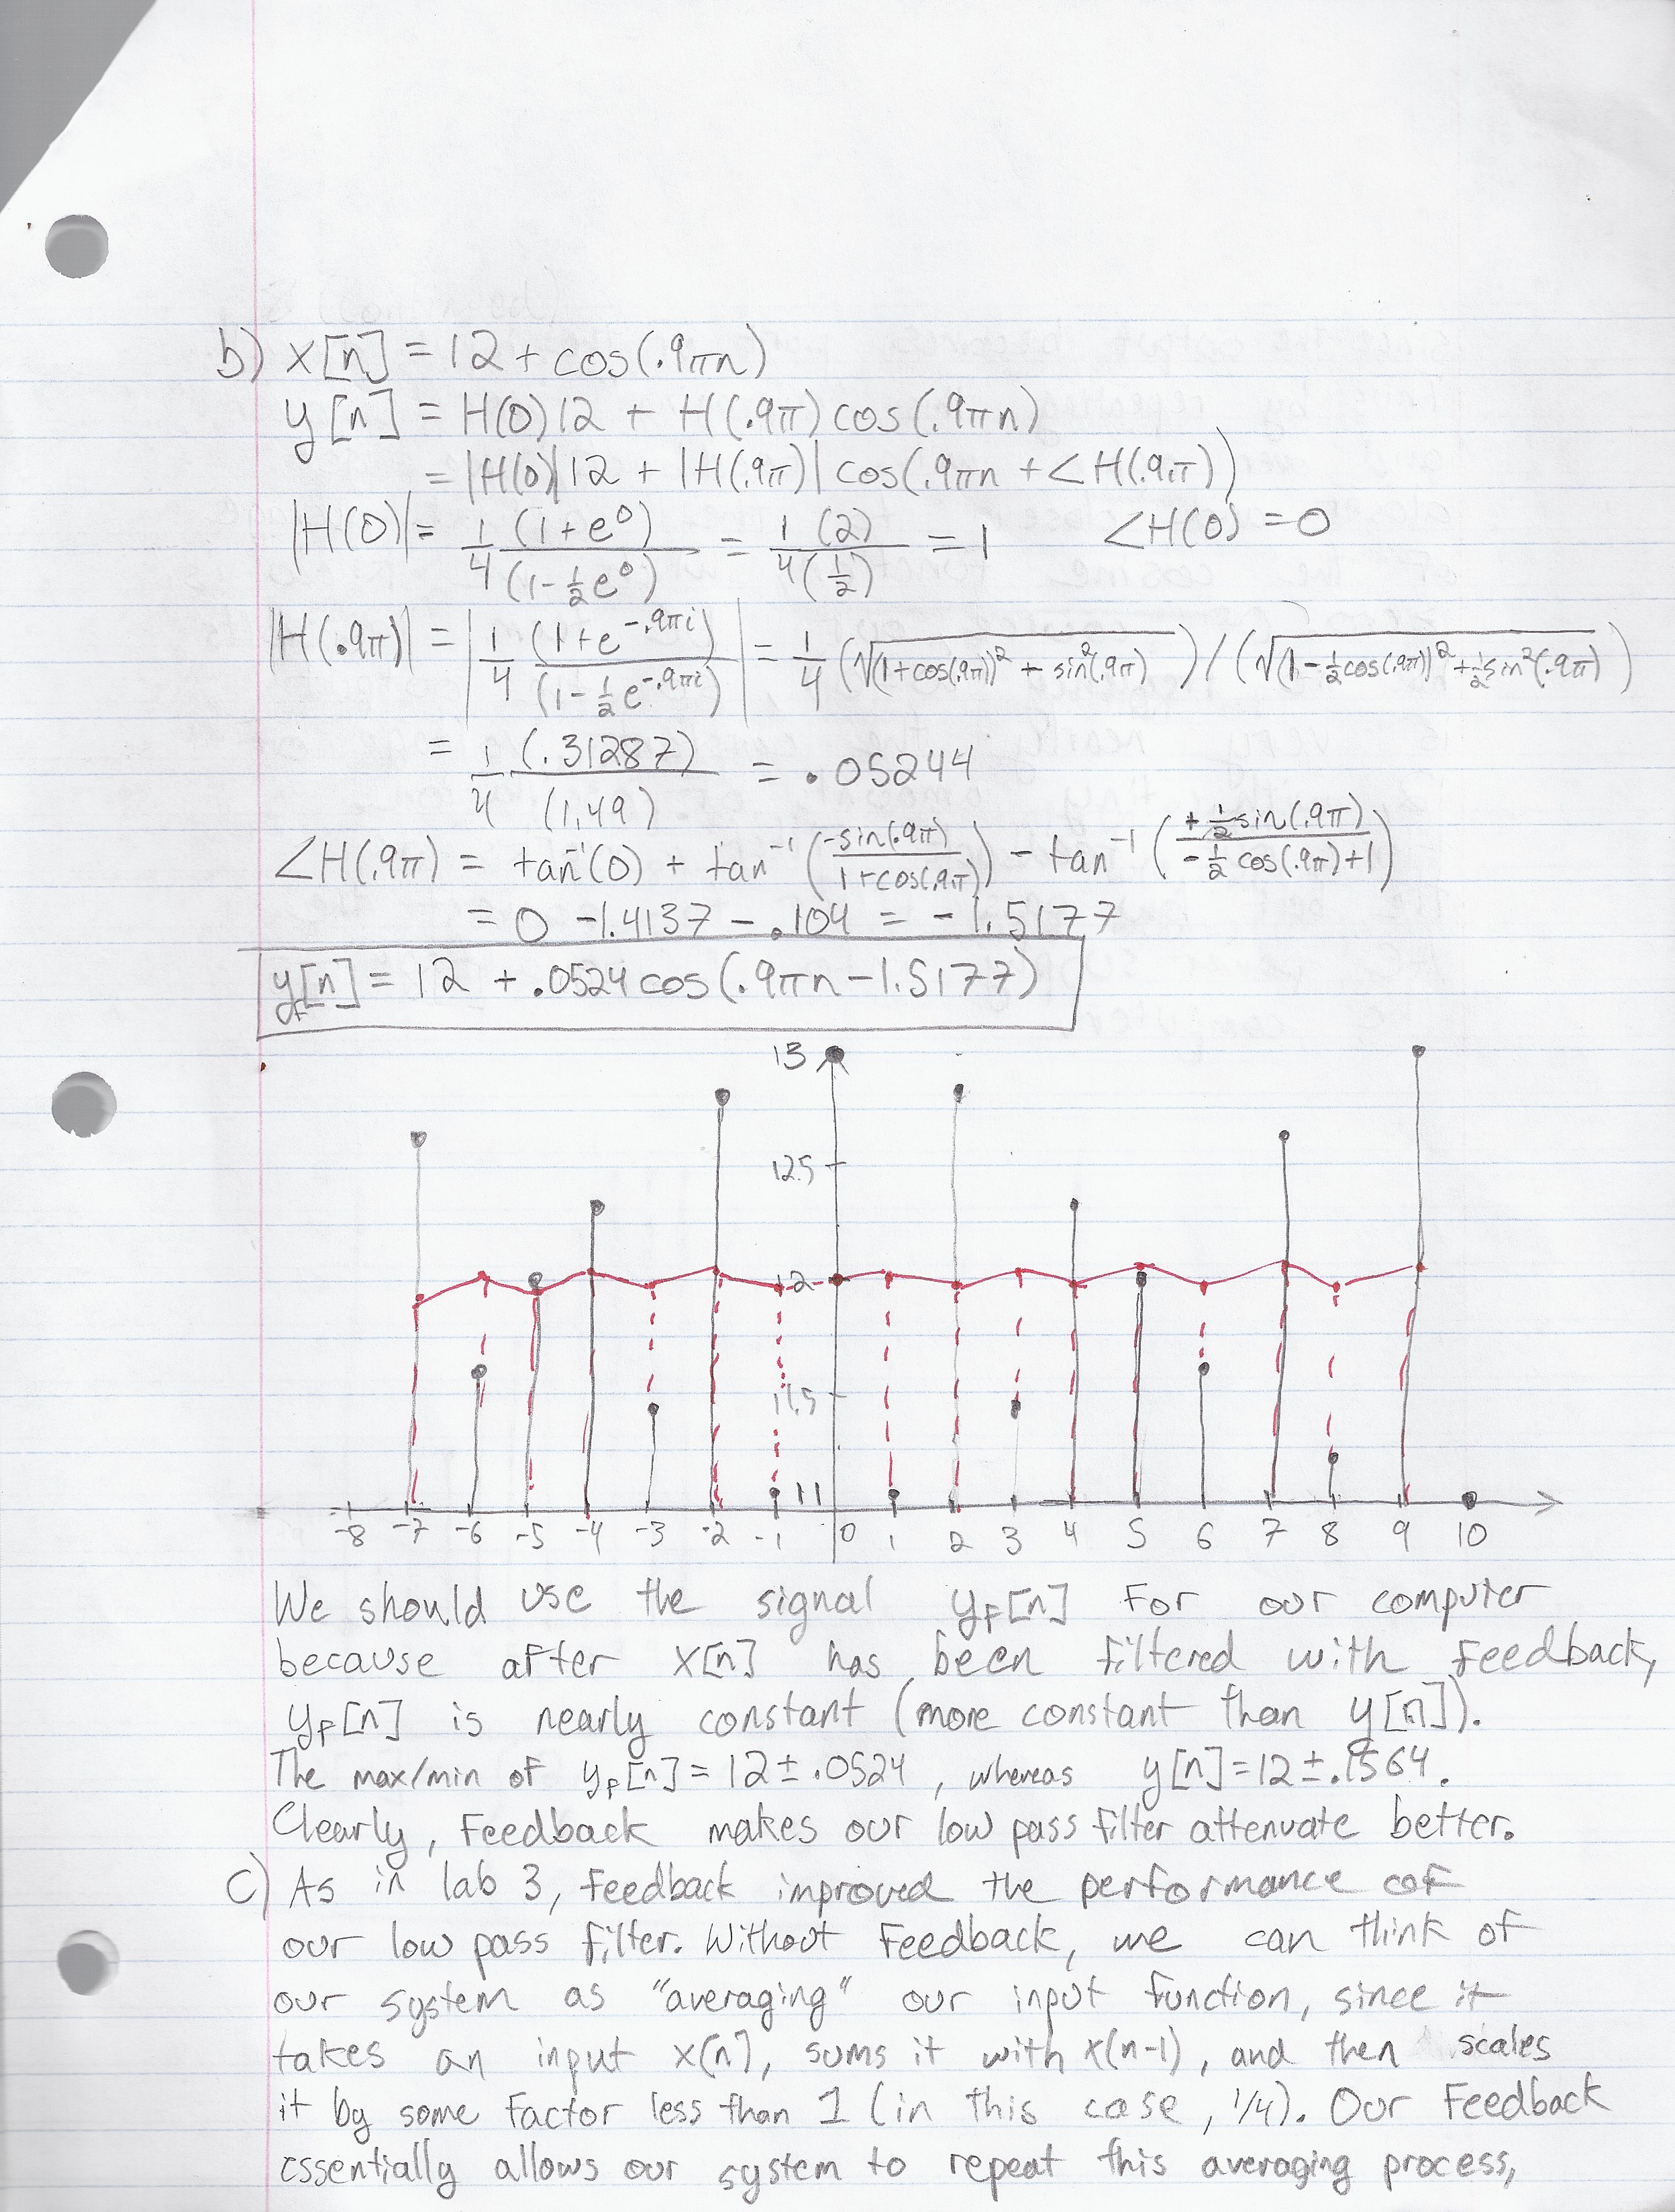 b) x[n] = 12 + cos(.9πn)
y[n] = H(0)12 + H(.9π) cos(.9πn)
= |H(0)|12 + |H(.9π)| cos(.9πn + ∠H(.9π))
|H(0)| = 1/4 (1+e^0)/(1-1/2e^0) = 1/4 (2)/(1/2) = 1 ∠H(0) = 0
|H(.9π)| = |1/4 (1+e^-.9πi)/(1-1/2e^-.9πi)| = 1/4 (√(1+cos(.9π))² + sin²(.9π)) / (√(1-1/2cos(.9π))² + 1/2sin²(.9π))
= 1/4 (.31287)/(1.49) = .05244
∠H(.9π) = tan^-1(0) + tan^-1(-sin(.9π)/1+cos(.9π)) - tan^-1(+1/2sin(.9π)/-1/2cos(.9π)+1)
= 0 -1.4137 - .104 = -1.5177
y_F[n] = 12 + .0524 cos(.9πn - 1.5177)
13
12.5
12
11.5
11
-8 -7 -6 -5 -4 -3 -2 -1 0 1 2 3 4 5 6 7 8 9 10
We should use the signal y_F[n] for our computer
because after x[n] has been filtered with feedback,
y_F[n] is nearly constant (more constant than y[n]).
The max/min of y_F[n] = 12 ± .0524, whereas y[n] = 12 ± .1564.
Clearly, feedback makes our low pass filter attenuate better.
c) As in lab 3, feedback improved the performance of
our low pass filter. Without feedback, we can think of
our system as "averaging" our input function, since it
takes an input x[n], sums it with x(n-1), and then scales
it by some factor less than 1 (in this case, 1/4). Our feedback
essentially allows our system to repeat this averaging process,